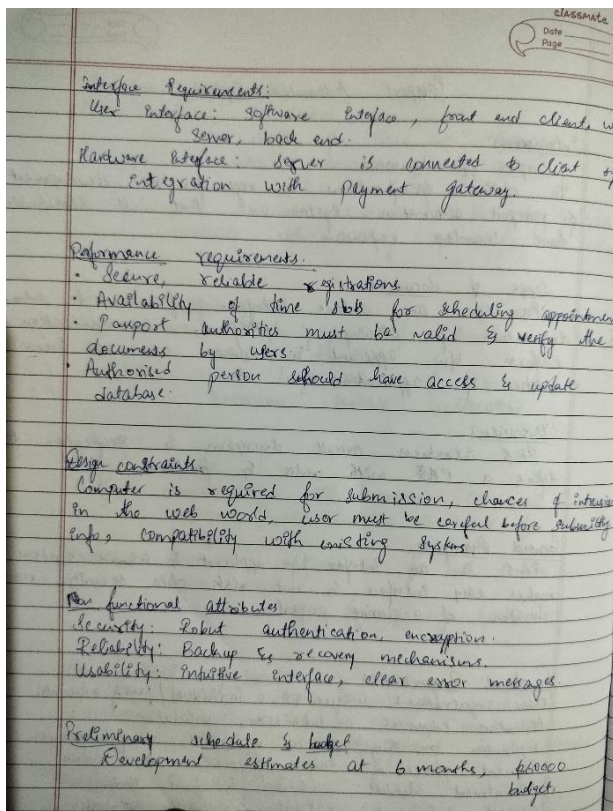 classmate
Date
Page
Interface Requirements:
User Interface: Software Inteface, front end client, w
server, back end.
Hardware Interface: Server is connected to client
integration with payment gateway.
Performance requirements.
• Secure, reliable registrations
• Availability of time slots for scheduling appointmen
• Passport authorities must be valid & verify the
documents by users.
• Authorised person should have access & update
database.
Design constraints.
Computer is required for submission, chances of intrusi
in the web world, user must be careful before
info, compatibility with existing systems
Non functional attributes
Security: Robut authentication, encryption.
Reliability: Backup & recovery mechanisms.
Usability: Intuitive interface, clear error messages.
Preliminary schedule & budget
Development estimates at 6 months,
budget.